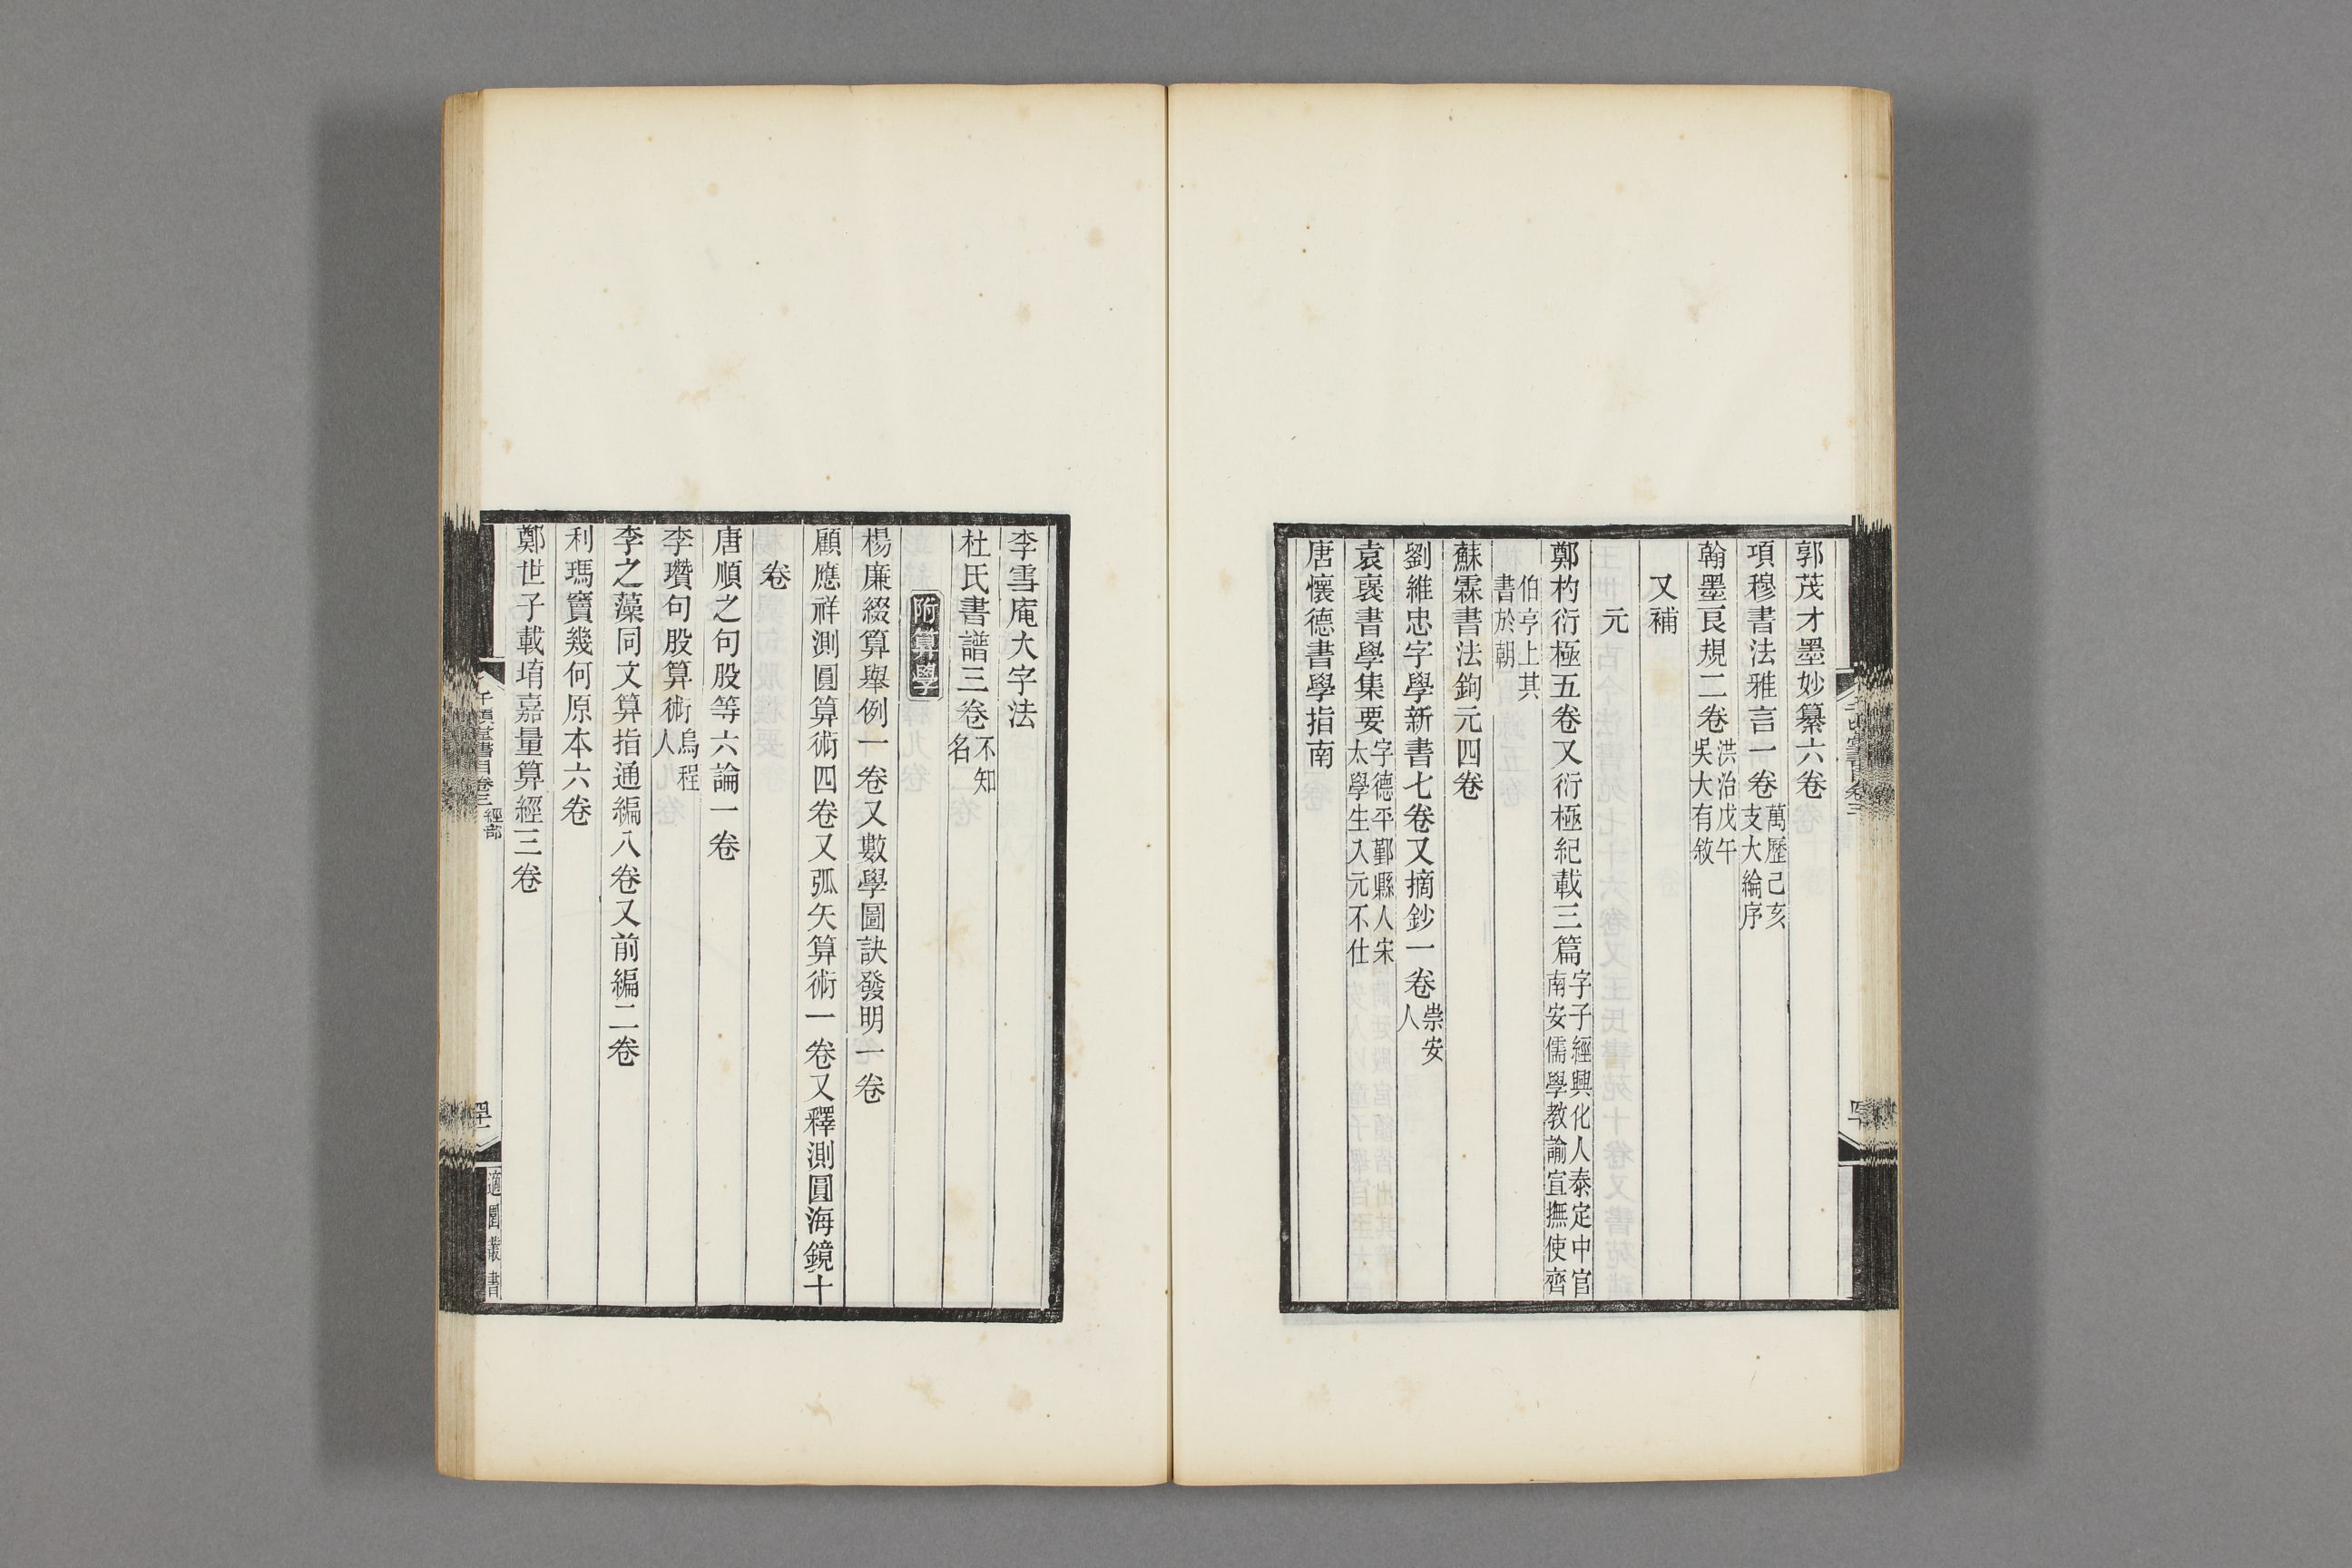 郭茂才墨妙纂六卷
項穆書法雅言一卷萬歷己亥支大綸序
翰墨良規二卷洪治戊午吳大有敘
又補
元
鄭杓衍極五卷又衍極紀載三篇字子經興化人泰定中官南安儒學教諭宣撫使齊
伯亨上其書於朝
蘇霖書法鉤元四卷
劉維忠字學新書七卷又摘鈔一卷崇安人
袁裒書學集要字德平鄞縣人宋太學生入元不仕
唐懷德書學指南
李雪庵大字法
杜氏書譜三卷不知名
附算學
楊廉綴算舉例一卷又數學圖訣發明一卷
顧應祥測圓算術四卷又弧矢算術一卷又釋測圓海鏡十
卷
唐順之句股等六論一卷
李瓚句股算術烏程人
李之藻同文算指通編八卷又前編二卷
利瑪竇幾何原本六卷
鄭世子載堉嘉量算經三卷
千頃堂書目卷三 經部
適園叢書